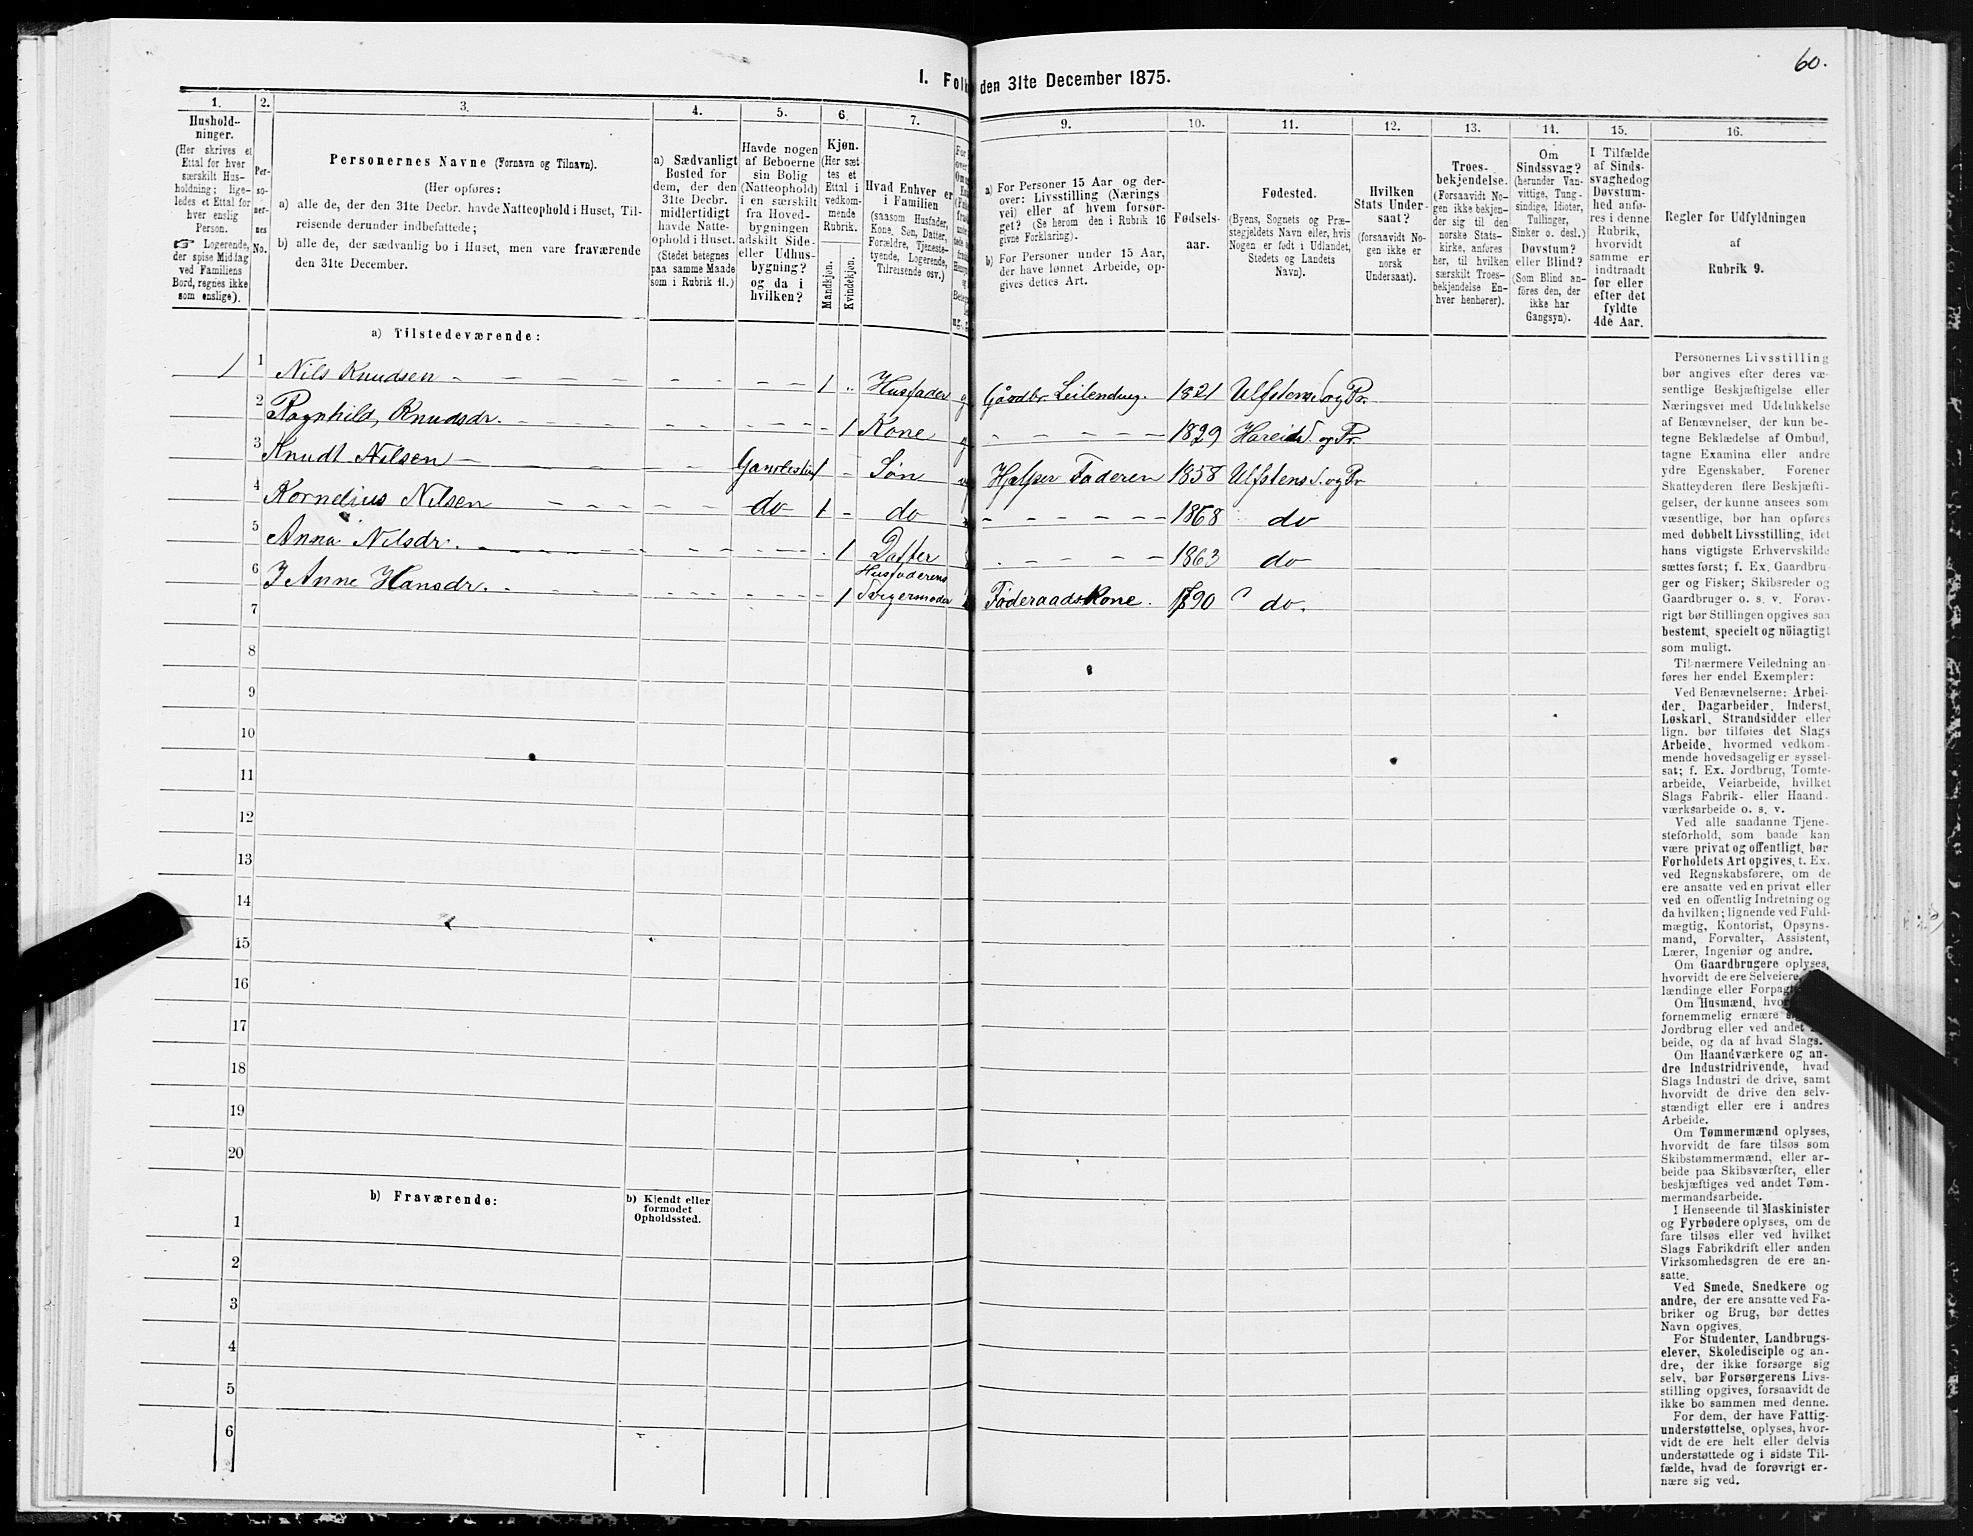 60.
I. Folk
den 31te December 1875.
1. 2. 3. 4. 5. 6. 7.
9. 10. 11. 12. 13. 14. 15. 16.
Hushold-
ninger.
(Her skrives et
Ettal for hver
særskilt Hus-
holdning; lige-
ledes et Ettal for
hver enslig
Person.
☞ Logerende,
der spise Middag
ved Familiens
Bord, regnes ikke
som enslige).
Per-
so-
ner-
nes
No.
Personernes Navne (Fornavn og Tilnavn).
(Her opføres:
a) alle de, der den 31te Decbr. havde Natteophold i Huset, Til-
reisende derunder indbefattede;
b) alle de, der sædvanlig bo i Huset, men vare fraværende
den 31te December.
a) Sædvanligt
Bosted for
dem, der den
31te Decbr.
midlertidigt
havde Natte-
ophold i Huset.
(Stedet betegnes
paa samme Maade
som i Rubrik 11.)
Havde nogen
af Beboerne
sin Bolig
(Natteophold)
i en særskilt
fra Hoved-
bygningen
adskilt Side-
eller Udhus-
bygning?
og da i
hvilken?
Kjøn.
(Her sæt
tes et
Ettal i
vedkom-
mende
Rubrik.
Mandkjøn.
Kvindekjøn.
Hvad Enhver er
i Familien
(saasom Husfader,
Kone, Søn, Datter,
Forældre, Tjeneste-
tyende, Logerende,
Tilreisende osv.)
a) For Personer 15 Aar og der-
over: Livsstilling (Nærings
vei) eller af hvem forsør-
get? (Se herom den i Rubrik 16
givne Forklaring).
b) For Personer under 15 Aar,
der have lønnet Arbeide, op-
gives dettes Art.
Fødsels-
aar.
Fødested.
(Byens, Sognets og Præ-
stegjeldets Navn eller, hvis
Nogen er født i Udlandet,
Stedets og Landets
Navn).
Hvilken
Stats Under-
saat?
(forsaavidt No-
gen ikke er
norsk
Undersaat).
Troes-
bekjendelse.
(Forsaavidt No-
gen ikke bekjen-
der sig til den
norske Stats-
kirke, anføres
her, til hvilken
særskilt Troes-
bekjendelse En-
hver henhører).
Om
Sindssvag?
(herunder Van-
vittige, Tung-
sindige, Idioter,
Tullinger,
Sinker o. desl.)
Døvstum?
eller Blind?
(Som Blind an-
føres den, der
ikke har
Gangsyn).
I Tilfælde
af Sinds-
svaghed og
Døvstum-
hed anfø-
res i denne
Rubrik,
hvorvidt
samme er
indtraadt
før eller
efter det
fyldte
4de Aar.
Regler for Udfyldningen
af
Rubrik 9.
a) Tilstedeværende:
1 1 Nils Knudsen 1 Husfader g Gaardbr. Leilending. 1821 Ulfstens S. og Pr.
2 Ragnhild, Knudsdr. 1 Kone g 1829 Hareids S. og Pr.
3 Knudt Nilsen 1 Søn Hjelper Faderen 1858 Ulfstens S. og Pr
4 Kornelius Nilsen do 1 do 1868 do
5 Anna Nilsdr. 1 Datter 1863 do
6 Anne Hansdr. 1 Husfaderens Svigermoder Føderaadskone. 1790 ? do.
7
8
9
10
11
12
13
14
15
16
17
18
19
20
b) Fraværende:
b) Kjendt eller
formodet
Opholdssted.
1
2
3
4
5
6
Personernes Livsstilling
bør angives efter deres væ-
sentlige Beskjæftigelse eller
Næringsvei med Udelukkelse
af Benævnelser, der kun be-
tegne Beklædelse af Ombud,
tagne Examina eller andre
ydre Egenskaber. Forener
Skatteyderen flere Beskjæfti-
gelser, der kunne ansees som
væsentlige, bør han opføres
med dobbelt Livsstilling, idet
hans vigtigste Erhvervskilde
sættes først; f. Ex. Gaardbru-
ger og Fisker; Skibsreder og
Gaardbruger o. s. v. Forøv-
rigt bør Stillingen opgives saa
bestemt, specielt og nöiagtigt
som muligt.
Til nærmere Veiledning an-
føres her endel Exempler:
Ved Benævnelserne: Arbei-
der, Dagarbeider, Inderst,
Løskarl, Strandsidder eller
lign. bør tilføies det Slags
Arbeide, hvormed vedkom-
mende hovedsagelig er syssel-
sat; f. Ex. Jordbrug, Tomte-
arbeide, Veiarbeide, hvilket
Slags Fabrik- eller Haand-
værksarbeide o. s. v.
Ved alle saadanne Tjene-
steforhold, som baade kan
være privat og offentligt, bør
Forholdets Art opgives, t. Ex.
ved Regnskabsførere, om de
ere ansatte ved en privat eller
ved en offentlig Indretning og
da hvilken; lignende ved Fuld-
mægtig, Kontorist, Opsyns-
mand, Forvalter, Assistent,
Lærer, Ingeniør og andre.
Om Gaardbrugere oplyses,
hvorvidt de ere Selveiere,
lændinge eller
Om Husmænd,
fornemmelig ernære
Jordbrug eller ved andet
beide, og da af hvad Slags.
Om Haandværkere og an-
dre Industridrivende, hvad
Slags Industri de drive, samt
hvorvidt de drive den selv-
stændigt eller ere i andres
Arbeide.
Om Tømmermænd oplyses,
hvorvidt de fare tilsøs som
Skibstømmermænd, eller ar-
beide paa Skibsværfter, eller
beskjæftiges ved andet Tøm-
mermandsarbeide.
I Henseende til Maskinister
og Fyrbødere oplyses, om de
fare tilsøs eller ved hvilket
Slags Fabrikdrift eller anden
Virksomhedsgren de ere an-
satte.
Ved Smede, Snedkere og
andre, der ere ansatte ved Fa-
briker og Brug, bør dettes
Navn opgives.
For Studenter, Landbrugs-
elever, Skoledisciple og an-
dre, der ikke forsørge sig
selv, bør Forsørgerens Livs-
stilling opgives, forsaavidt de
ikke bo sammen med denne.
For dem, der have Fattig-
understøttelse, oplyses, hvor-
vidt de ere helt eller delvis
understøttede og i sidste Til-
fælde, hvad de forøvrigt er-
nære sig ved.